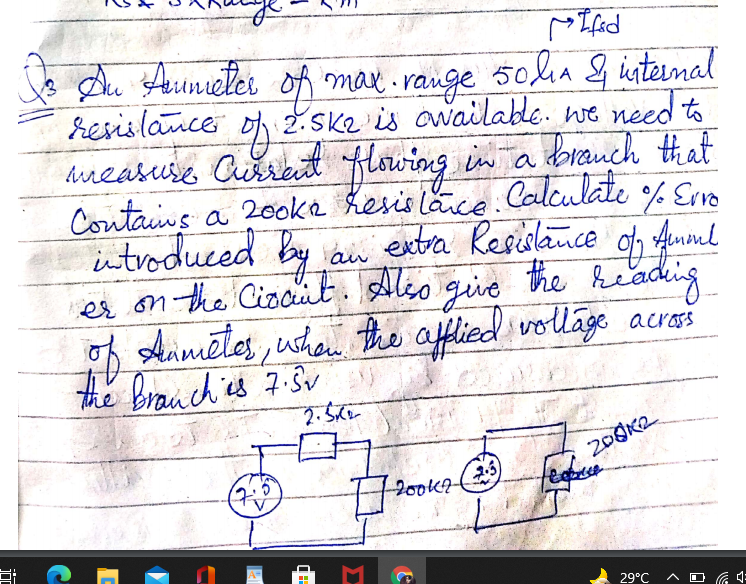 Ifsd
Q3 An Ammeter of max. range 50μA & internal
resistance of 2.5KΩ is available. we need to
measure Current flowing in a branch that
Contains a 200KΩ resistance. Calculate % Erro
introduced by an extra Resistance of Ammet
er on the Circuit. Also give the reading
of Ammeter, when the applied voltage across
the Branch is 7.5v
2.5KΩ
7.5
V
200KΩ
7.5
200KΩ
29°C